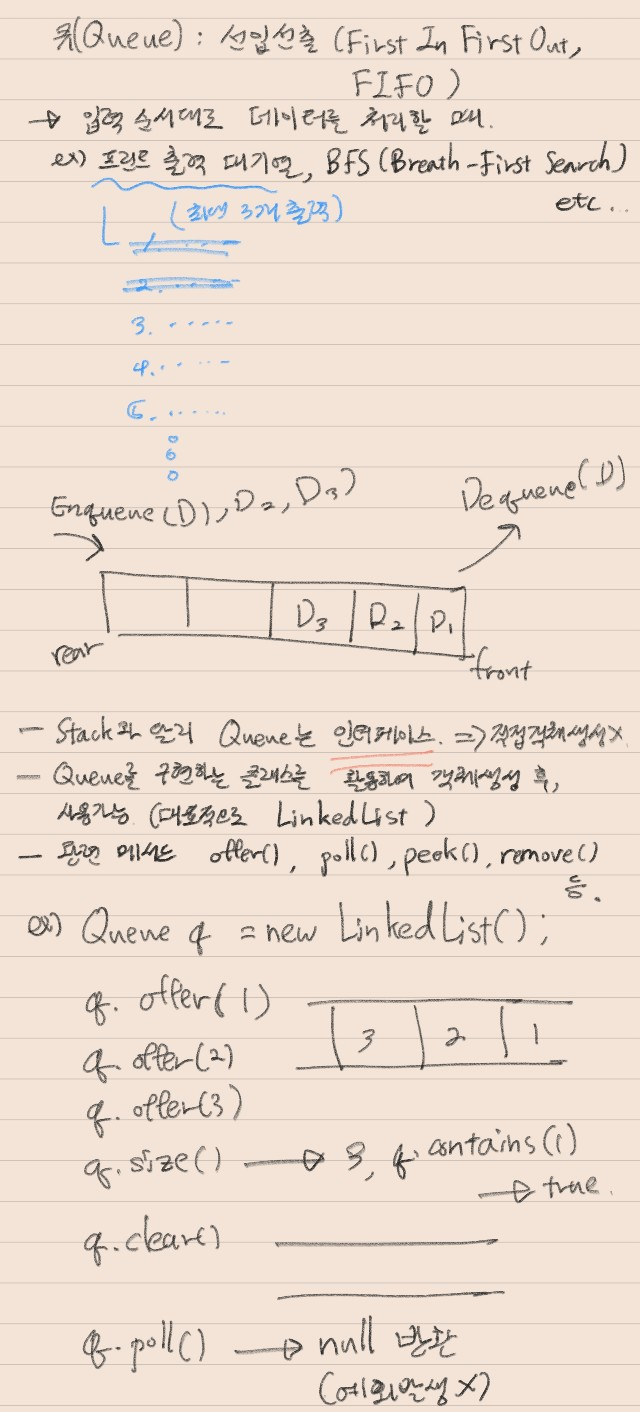 큐(Queue) : 선입선출 (First In First Out,
FIFO)
→ 입력 순서대로 데이터를 처리할 때.
ex) 프린트 출력 대기열, BFS (Breath-First Search)
etc...
(최대 3개 출력)
1. ......
2. ......
3. ......
4. ......
5. ......
Enqueue(D), D2, D3)
Dequeue(D)
D3 D2 D1
rear
front
- Stack과 달리 Queue는 인터페이스. => 직접객체생성X.
- Queue를 구현하는 클래스를 활용하여 객체생성 후,
사용가능. (대표적으로 LinkedList)
- 관련 메서드 offer(), poll(), peek(), remove()
등.
ex) Queue q = new LinkedList();
q. offer(1)
3 2 1
q. offer(2)
q. offer(3)
q. size() → 3, q. contains(1)
→ true.
q. clear()
q. poll() → null 반환
(예외발생 X)